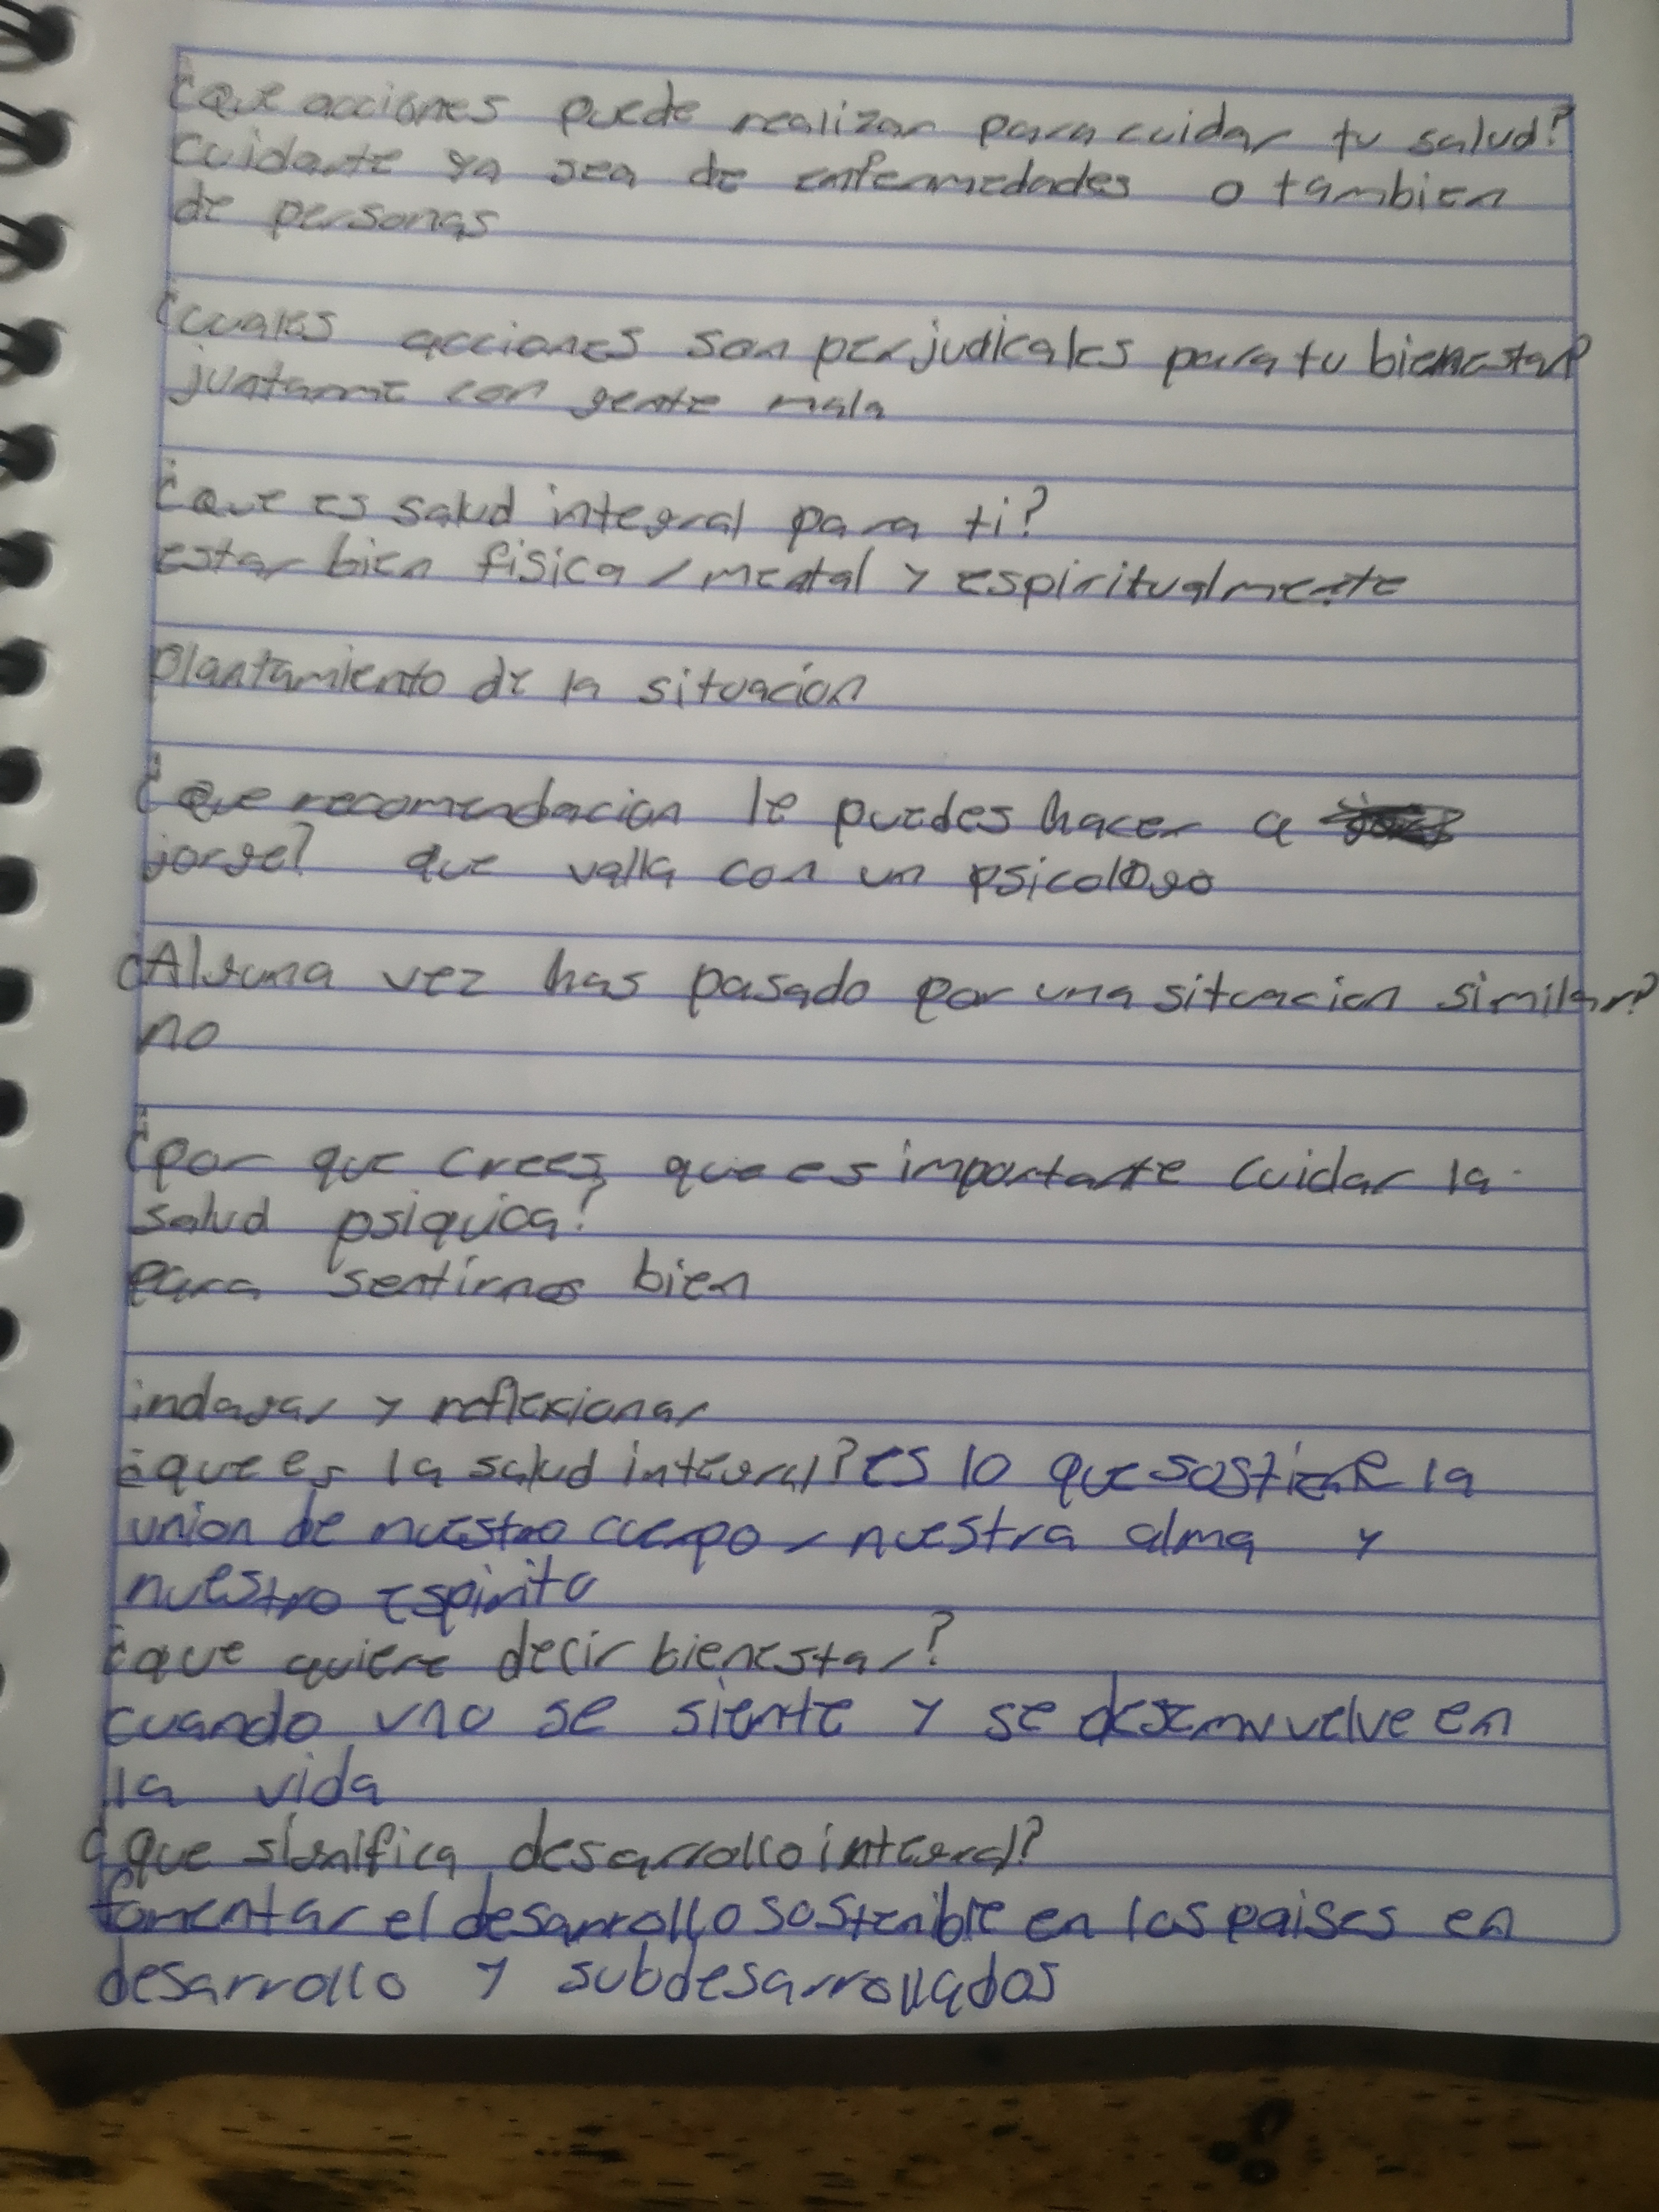 ¿Que acciones puede realizar para cuidar tu salud?
cuidarte ya sea de enfermedades o tambien
de personas
¿cuales acciones son perjudicales para tu bienestar?
juntarme con gente mala
¿que es salud integral para ti?
estar bien fisica, mental y espiritualmente
plantamiento de la situacion
¿Que recomendacion le puedes hacer a
jorge? que valla con un psicologo
¿Alguna vez has pasado por una situacion similar?
no
¿por que crees que es importante cuidar la
salud psiquica?
para sentirnos bien
indagar y reflexionar
¿que es la salud integral? es lo que sostiene la
union de nuestro cuerpo, nuestra alma y
nuestro espirito
¿que quiere decir bienestar?
cuando uno se siente y se desemvuelve en
la vida
¿que significa desarrollo integral?
fomentar el desarrollo sostenible en los paises en
desarrollo y subdesarrollados